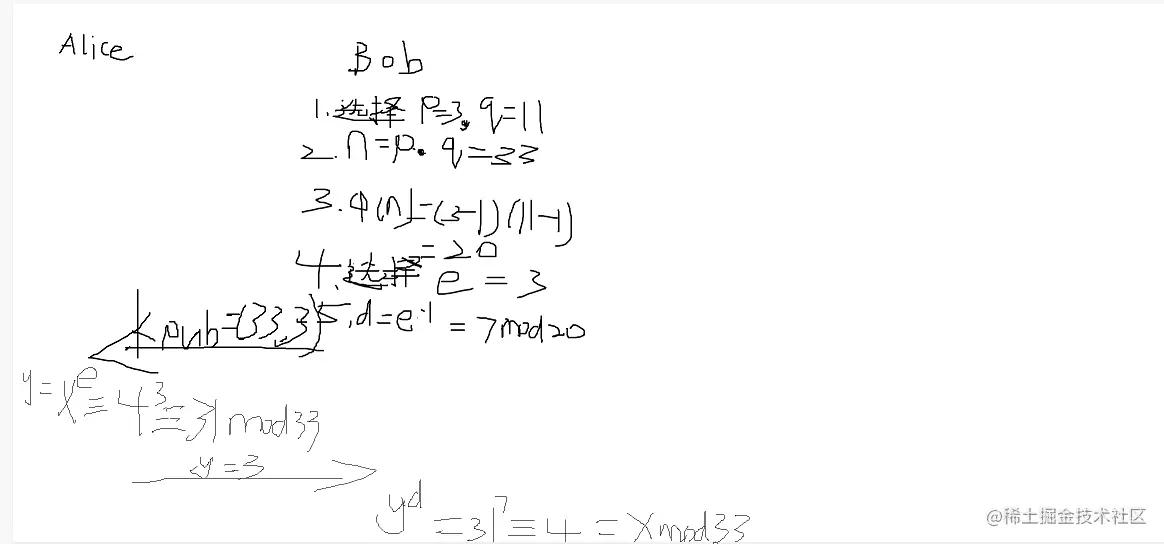 Alice
Bob
1.选择 p=3, q=11
2. n=p. q=33
3. φ(n)=(3-1)(11-1)
=20
4.选择 e=3
5.d=e-1 =7mod20
kpub=(33,3)
y=x^e≡4^3≡31mod33
y=3
y^d=31^7≡4=xmod33
@稀土掘金技术社区